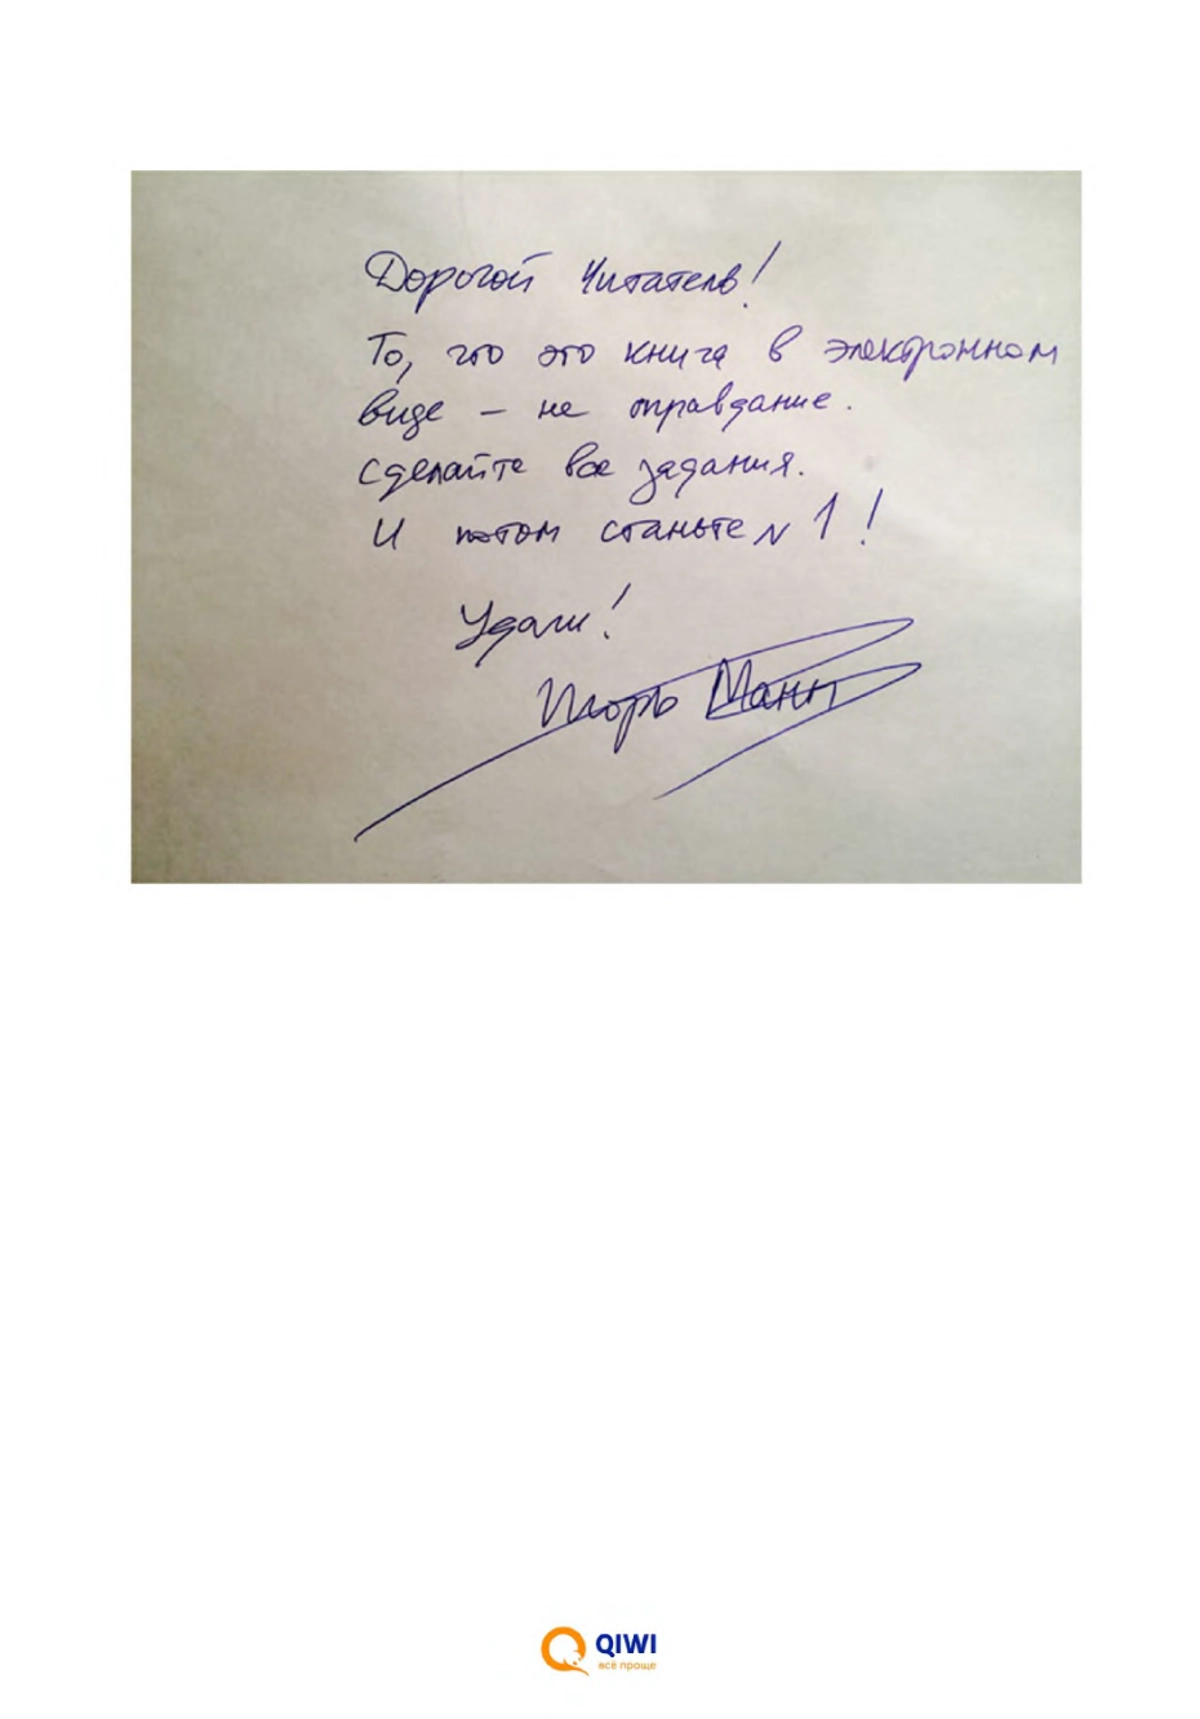 Дорогой Читатель!
То, что это книга в электронном
виде – не оправдание.
Сделайте все задания.
И потом станьте N 1!
Удачи!
Игорь Манн
QIWI
всё проще